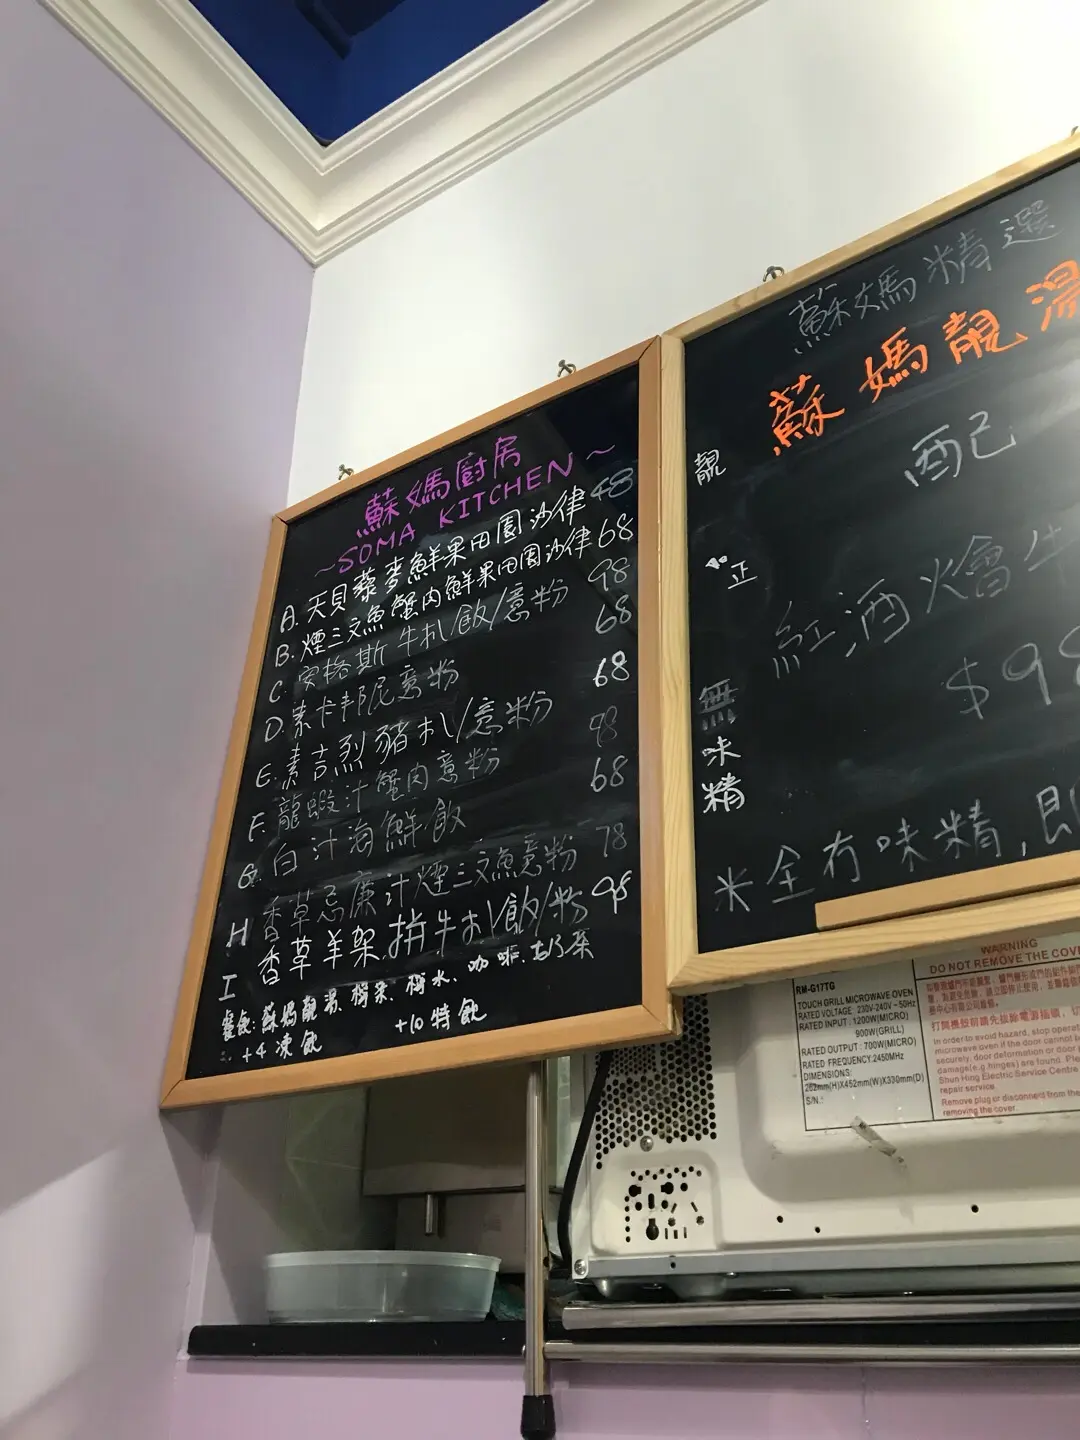 蘇媽廚房
~SOMA KITCHEN~
A. 天貝藜麥鮮果田園沙律 48
B. 煙三文魚蟹肉鮮果田園沙律 68
C. 安格斯牛扒飯/意粉 98
D. 素卡邦尼意粉 68
E. 素吉烈豬扒/意粉 68
F. 龍蝦汁蟹肉意粉 98
G. 白汁海鮮飯 68
H 香草忌廉汁煙三文魚意粉 78
I 香草羊架拼牛扒飯/粉 98
餐飲: 蘇媽靚湯、
咖啡、
+4 凍飲
+10 特飲
蘇媽精選
蘇媽靚湯
配
紅酒燴牛
$98
靚
正
無味精
米全冇味精,即
RM-G17TG
TOUCH GRILL MICROWAVE OVEN
RATED VOLTAGE: 230V-240V~50Hz
RATED INPUT: 1200W(MICRO)
900W(GRILL)
RATED OUTPUT: 700W(MICRO)
RATED FREQUENCY:2450MHz
DIMENSIONS:
262mm(H)X452mm(W)X330mm(D)
S/N.:
WARNING
DO NOT REMOVE THE COVE
打開機殼前請先拔除電源插頭,
In order to avoid hazard, stop operat
microwave oven if the door cannot b
securely, door deformation or door
damage(e.g.hinges) are found. Ple
Shun Hing Electric Service Centre
repair service.
Remove plug or disconnect from the
removing the cover.